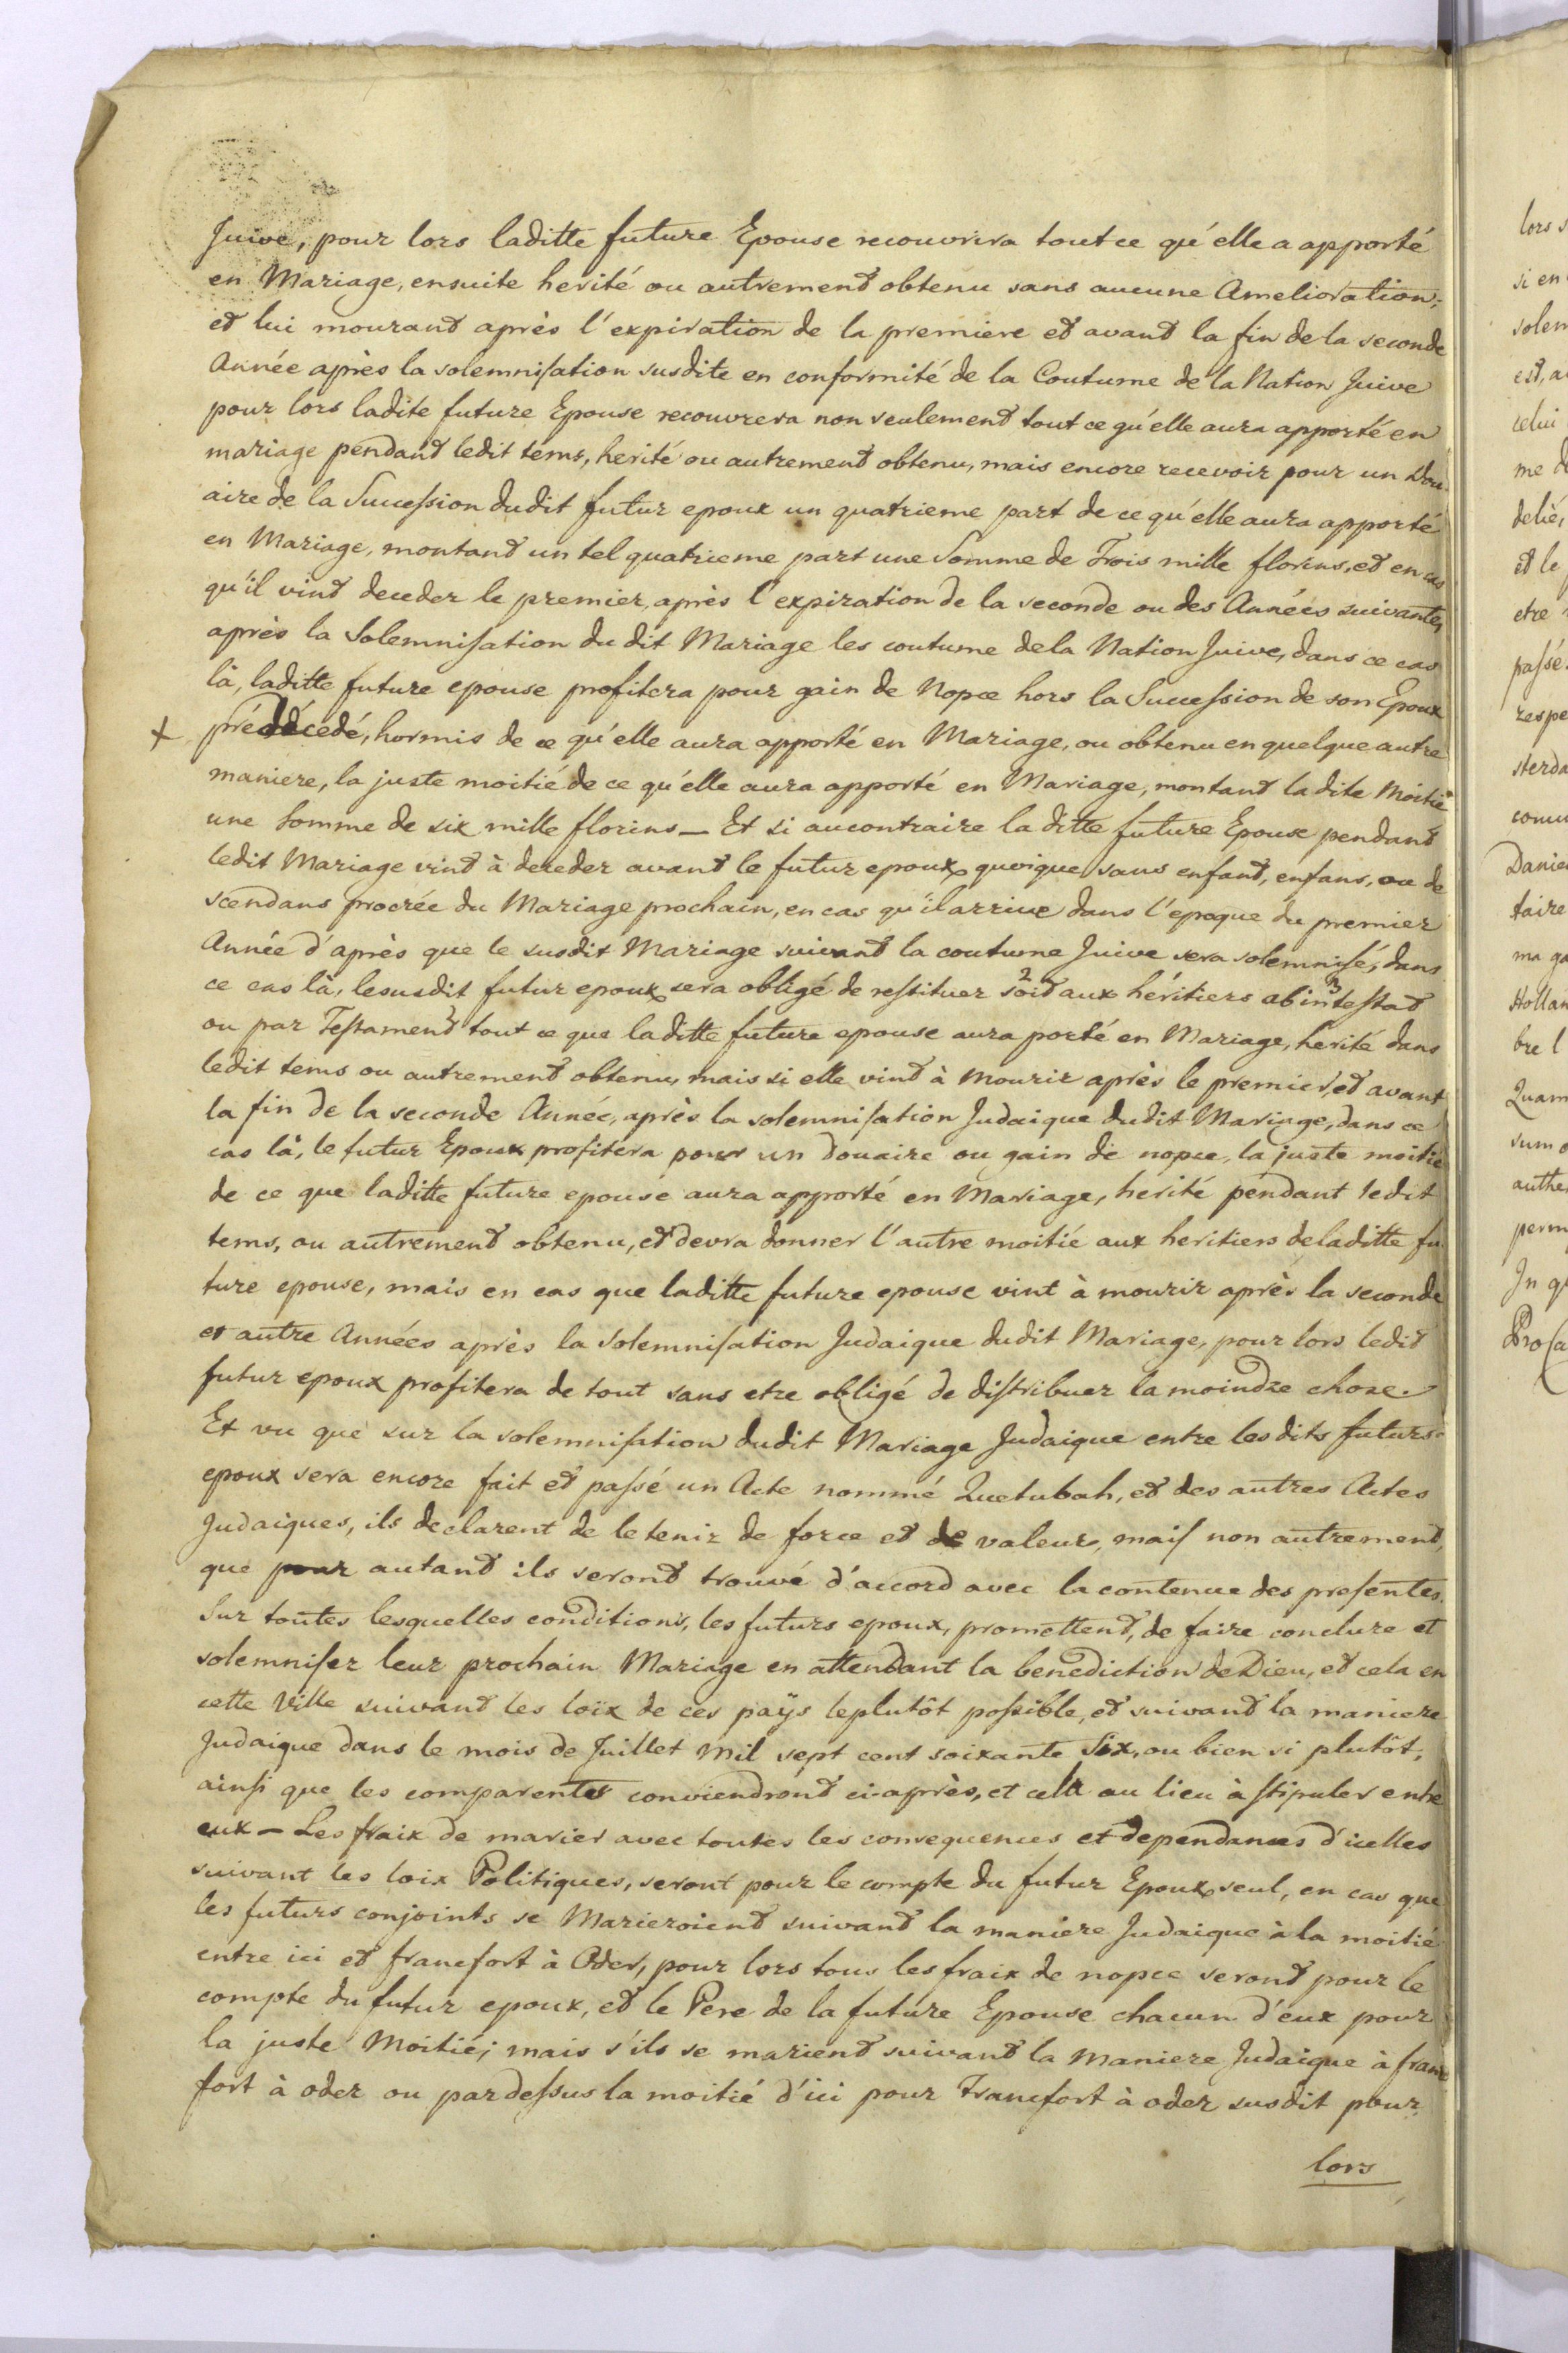 Juive, pour lors laditte future Epouse recouvrira tout ce qu'elle a apporté
en Mariage, ensuite herité ou autrement obtenu sans aucune Amelioration;
et lui mourant après l'expiration de la premiere et avant la fin de la seconde
Année après la solemnisation susdite en conformité de la Coutume de la Nation Juive
pour lors ladite future Epouse recouvrera non seulement tout ce qu'elle aura apporté en
mariage pendant ledit tems, herité ou autrement obtenu, mais encore recevoir pour un Dou-
aire de la Succession dudit futur epoux un quatrieme part de ce qu'elle aura apporté
en Mariage, montant un tel quatrieme part une Somme de Trois mille florins, et en cas
qu'il vint deceder le premier, après l'expiration de la seconde ou des Années suivantes
après la Solemnisation du dit Mariage les coutume de la Nation Juive, dans ce cas
là, laditte future epouse profitera pour gain de Nopce hors la Succession de son Epoux
+ prédécedé, hormis de ce qu'elle aura apporté en Mariage, ou obtenu en quelque autre
maniere, la juste moitié de ce qu'elle aura apporté en Mariage, montant la dite Moitié
une Somme de six mille florins — Et si aucontraire la ditte future Epouse pendant
ledit Mariage vint à deceder avant le futur epoux, quoique sans enfant, enfans, ou de
scendans procrée du Mariage prochain, en cas qu'il arrive dans l'epoque du premier
Année d'après que le susdit Mariage suivant la coutume Juive sera solemnisé, dans
ce cas là, lesusdit futur epoux sera obligé de restituer 2 soit aux héritiers ab in 3 testat
ou par Testament tout ce que laditte future epouse aura porté en Mariage, herité dans
ledit tems ou autrement obtenu, mais si elle vint à Mourir après le premier, et avant
la fin de la seconde Année, après la solemnisation Judaique dudit Mariage, dans ce
cas là, le futur Epoux profitera pour un douaire ou gain de nopce, la juste moitié
de ce que laditte future epouse aura apporté en Mariage, herité pendant ledit
tems, ou autrement obtenu, et devra donner l'autre moitié aux heritiers deladitte fu
ture epouse, mais en cas que laditte future epouse vint à mourir après la seconde
et autre Années après la Solemnisation Judaique dudit Mariage, pour lors ledit
futur epoux profitera de tout sans etre obligé de distribuer la moindre chose.
Et vu que sur la solemnisation dudit Mariage Judaique entre lesdits futurs
epoux sera encore fait et passé un Acte nommé Quetubah, et des autres Actes
Judaiques, ils declarent de le tenir de force et de valeur, mais non autrement,
que pour autant ils seront trouvé d'accord avec la contenue des presentes.
Sur toutes lesquelles conditions, les futurs epoux, promettent, de faire conclure et
solemniser leur prochain Mariage en attendant la benediction de Dieu, et cela en
cette Ville suivant les loix de ces païs leplutôt possible, et suivant la maniere
Judaique dans le mois de Juillet Mil sept cent soixante Six, ou bien si plutôt,
ainsi que les comparentes conviendront ci-après, et cela au lieu à stipuler entre
eux — Les fraix de marier avec toutes les consequences et dependances d'icelles
suivant les loix Politiques, seront pour le compte du futur Epoux seul, en cas que
les futurs conjoints se Marieroient suivant la maniere Judaique à la moitié
entre ici et francfort à Oder, pour lors tous les fraix de nopce seront pour le
compte du futur epoux, et le Pere de la future Epouse chacun d'eux pour
la juste Moitié; mais s'ils se marient suivant la Maniere Judaique à franc
fort à oder ou pardessus la moitié d'ici pour Francfort à oder susdit pour
lors